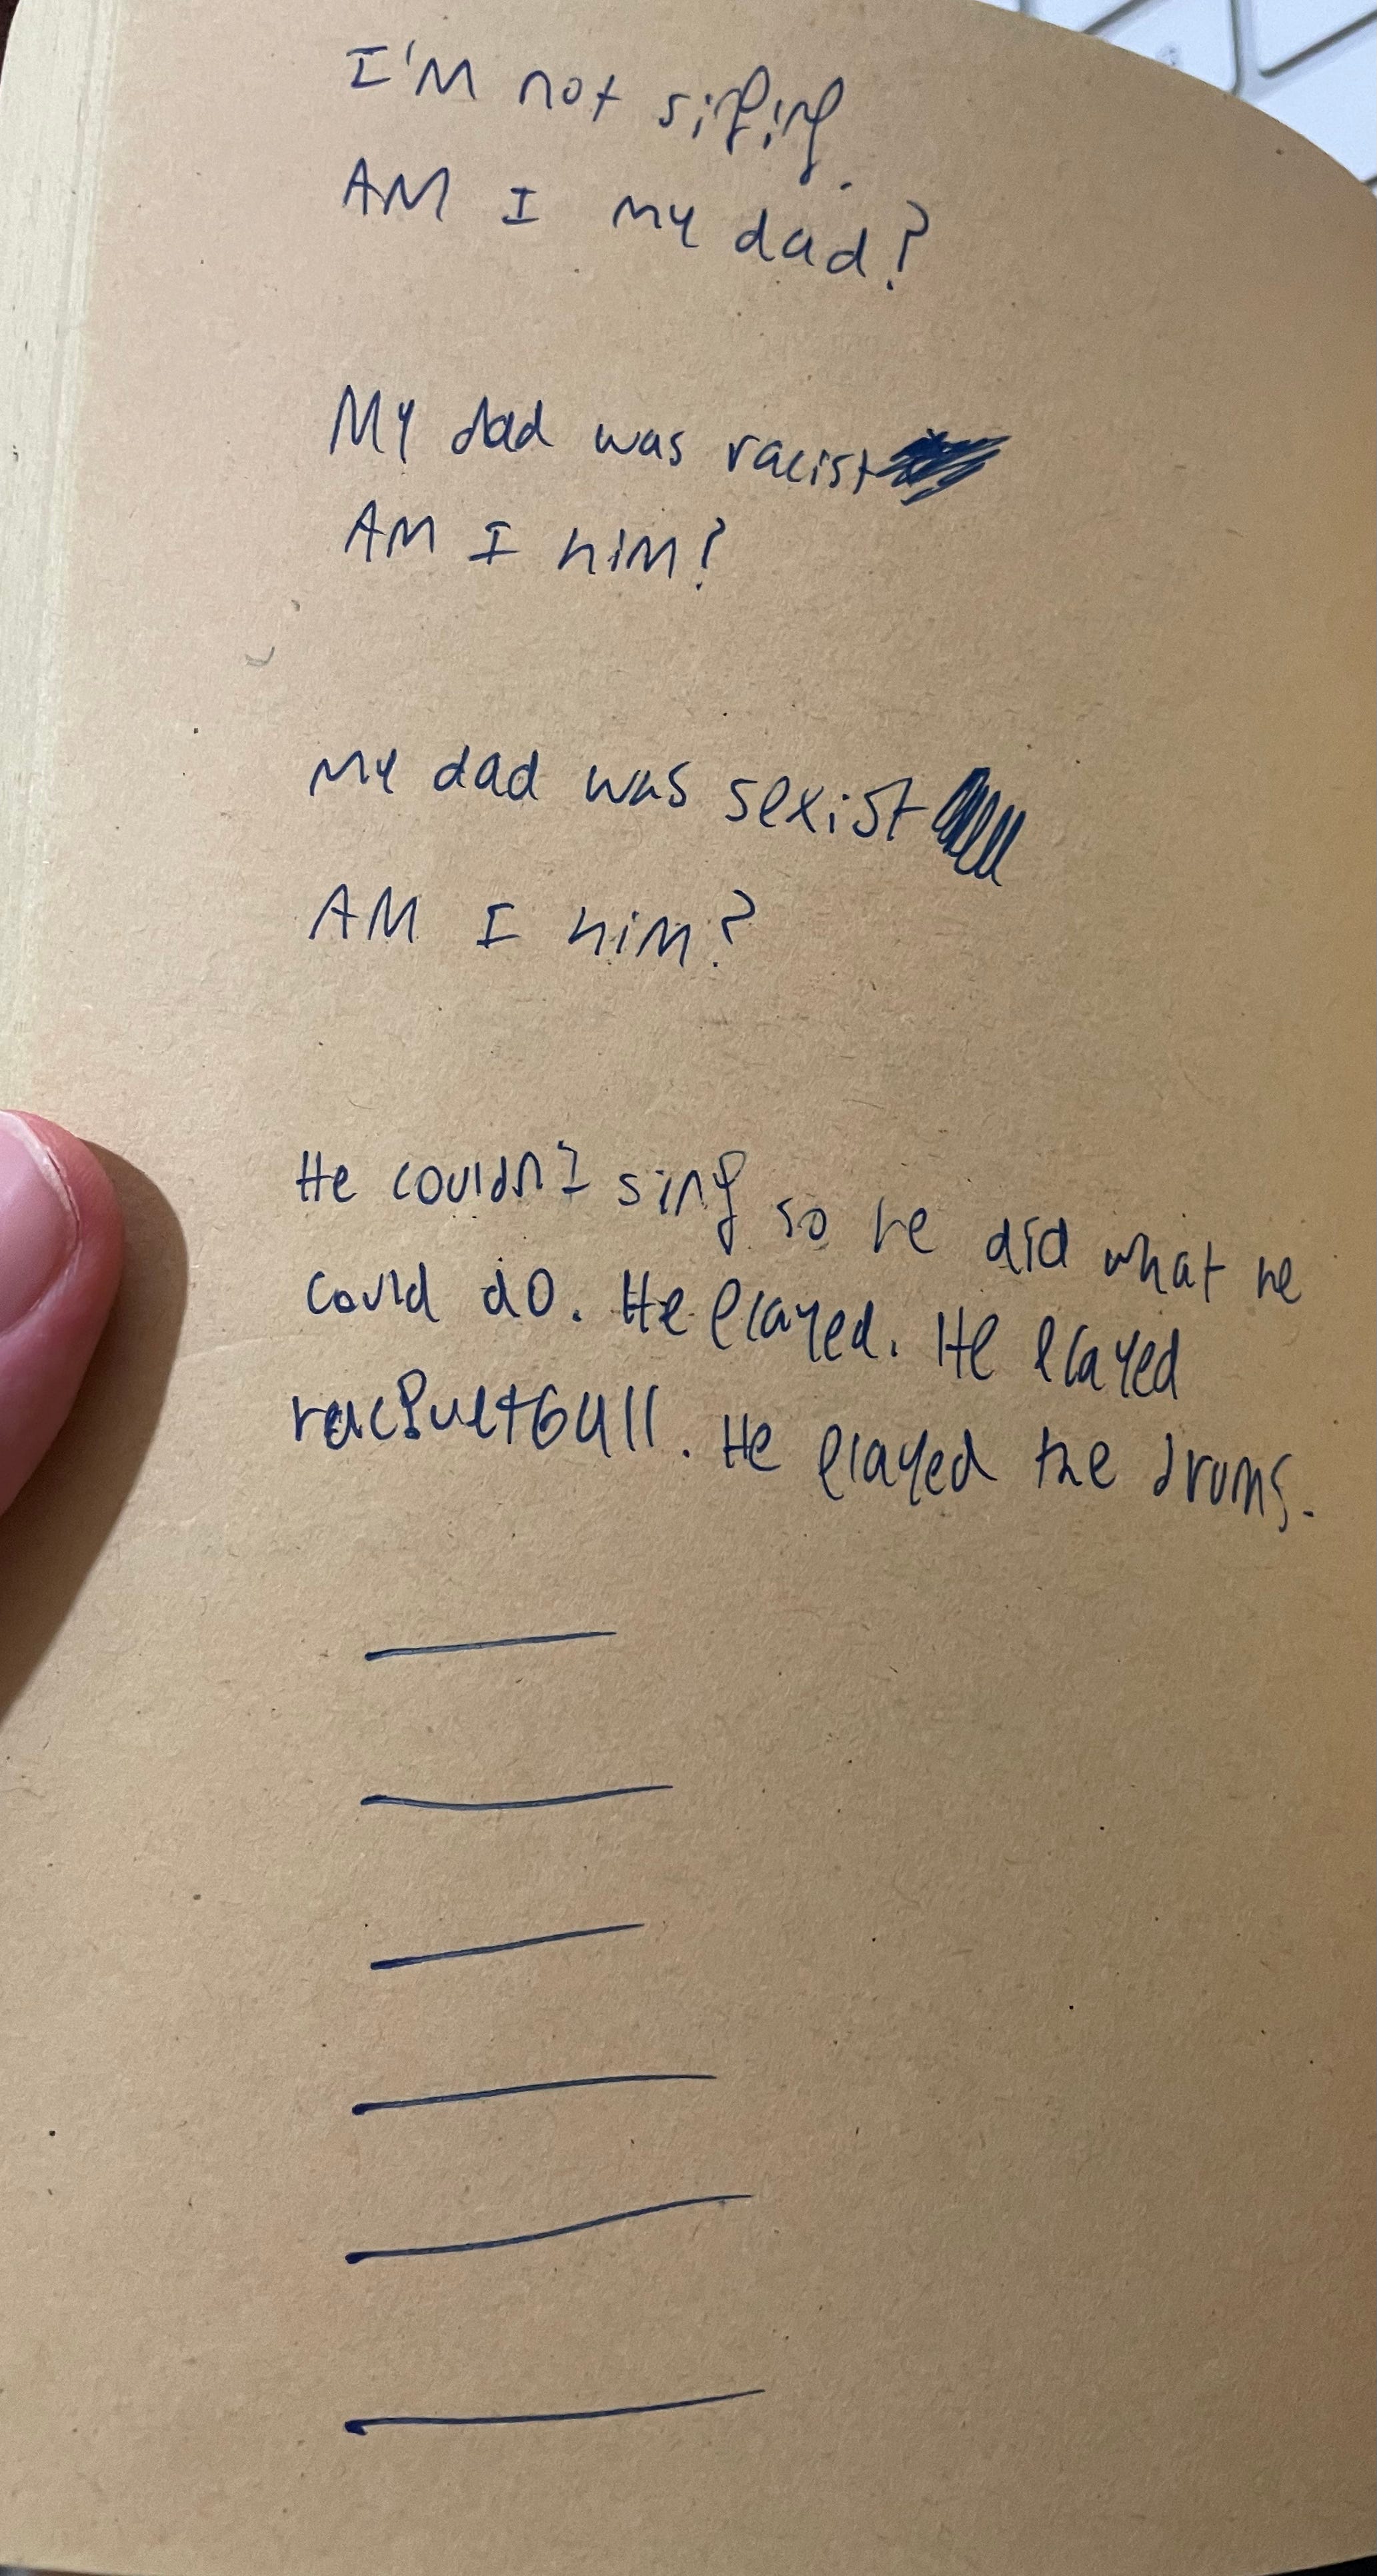 I'M not singing.
AM I my dad?
My dad was racist
AM I him?
My dad was sexist
AM I him?
He couldn't sing so he did what he
could do. He played. He played
racquetball. He played the drums.